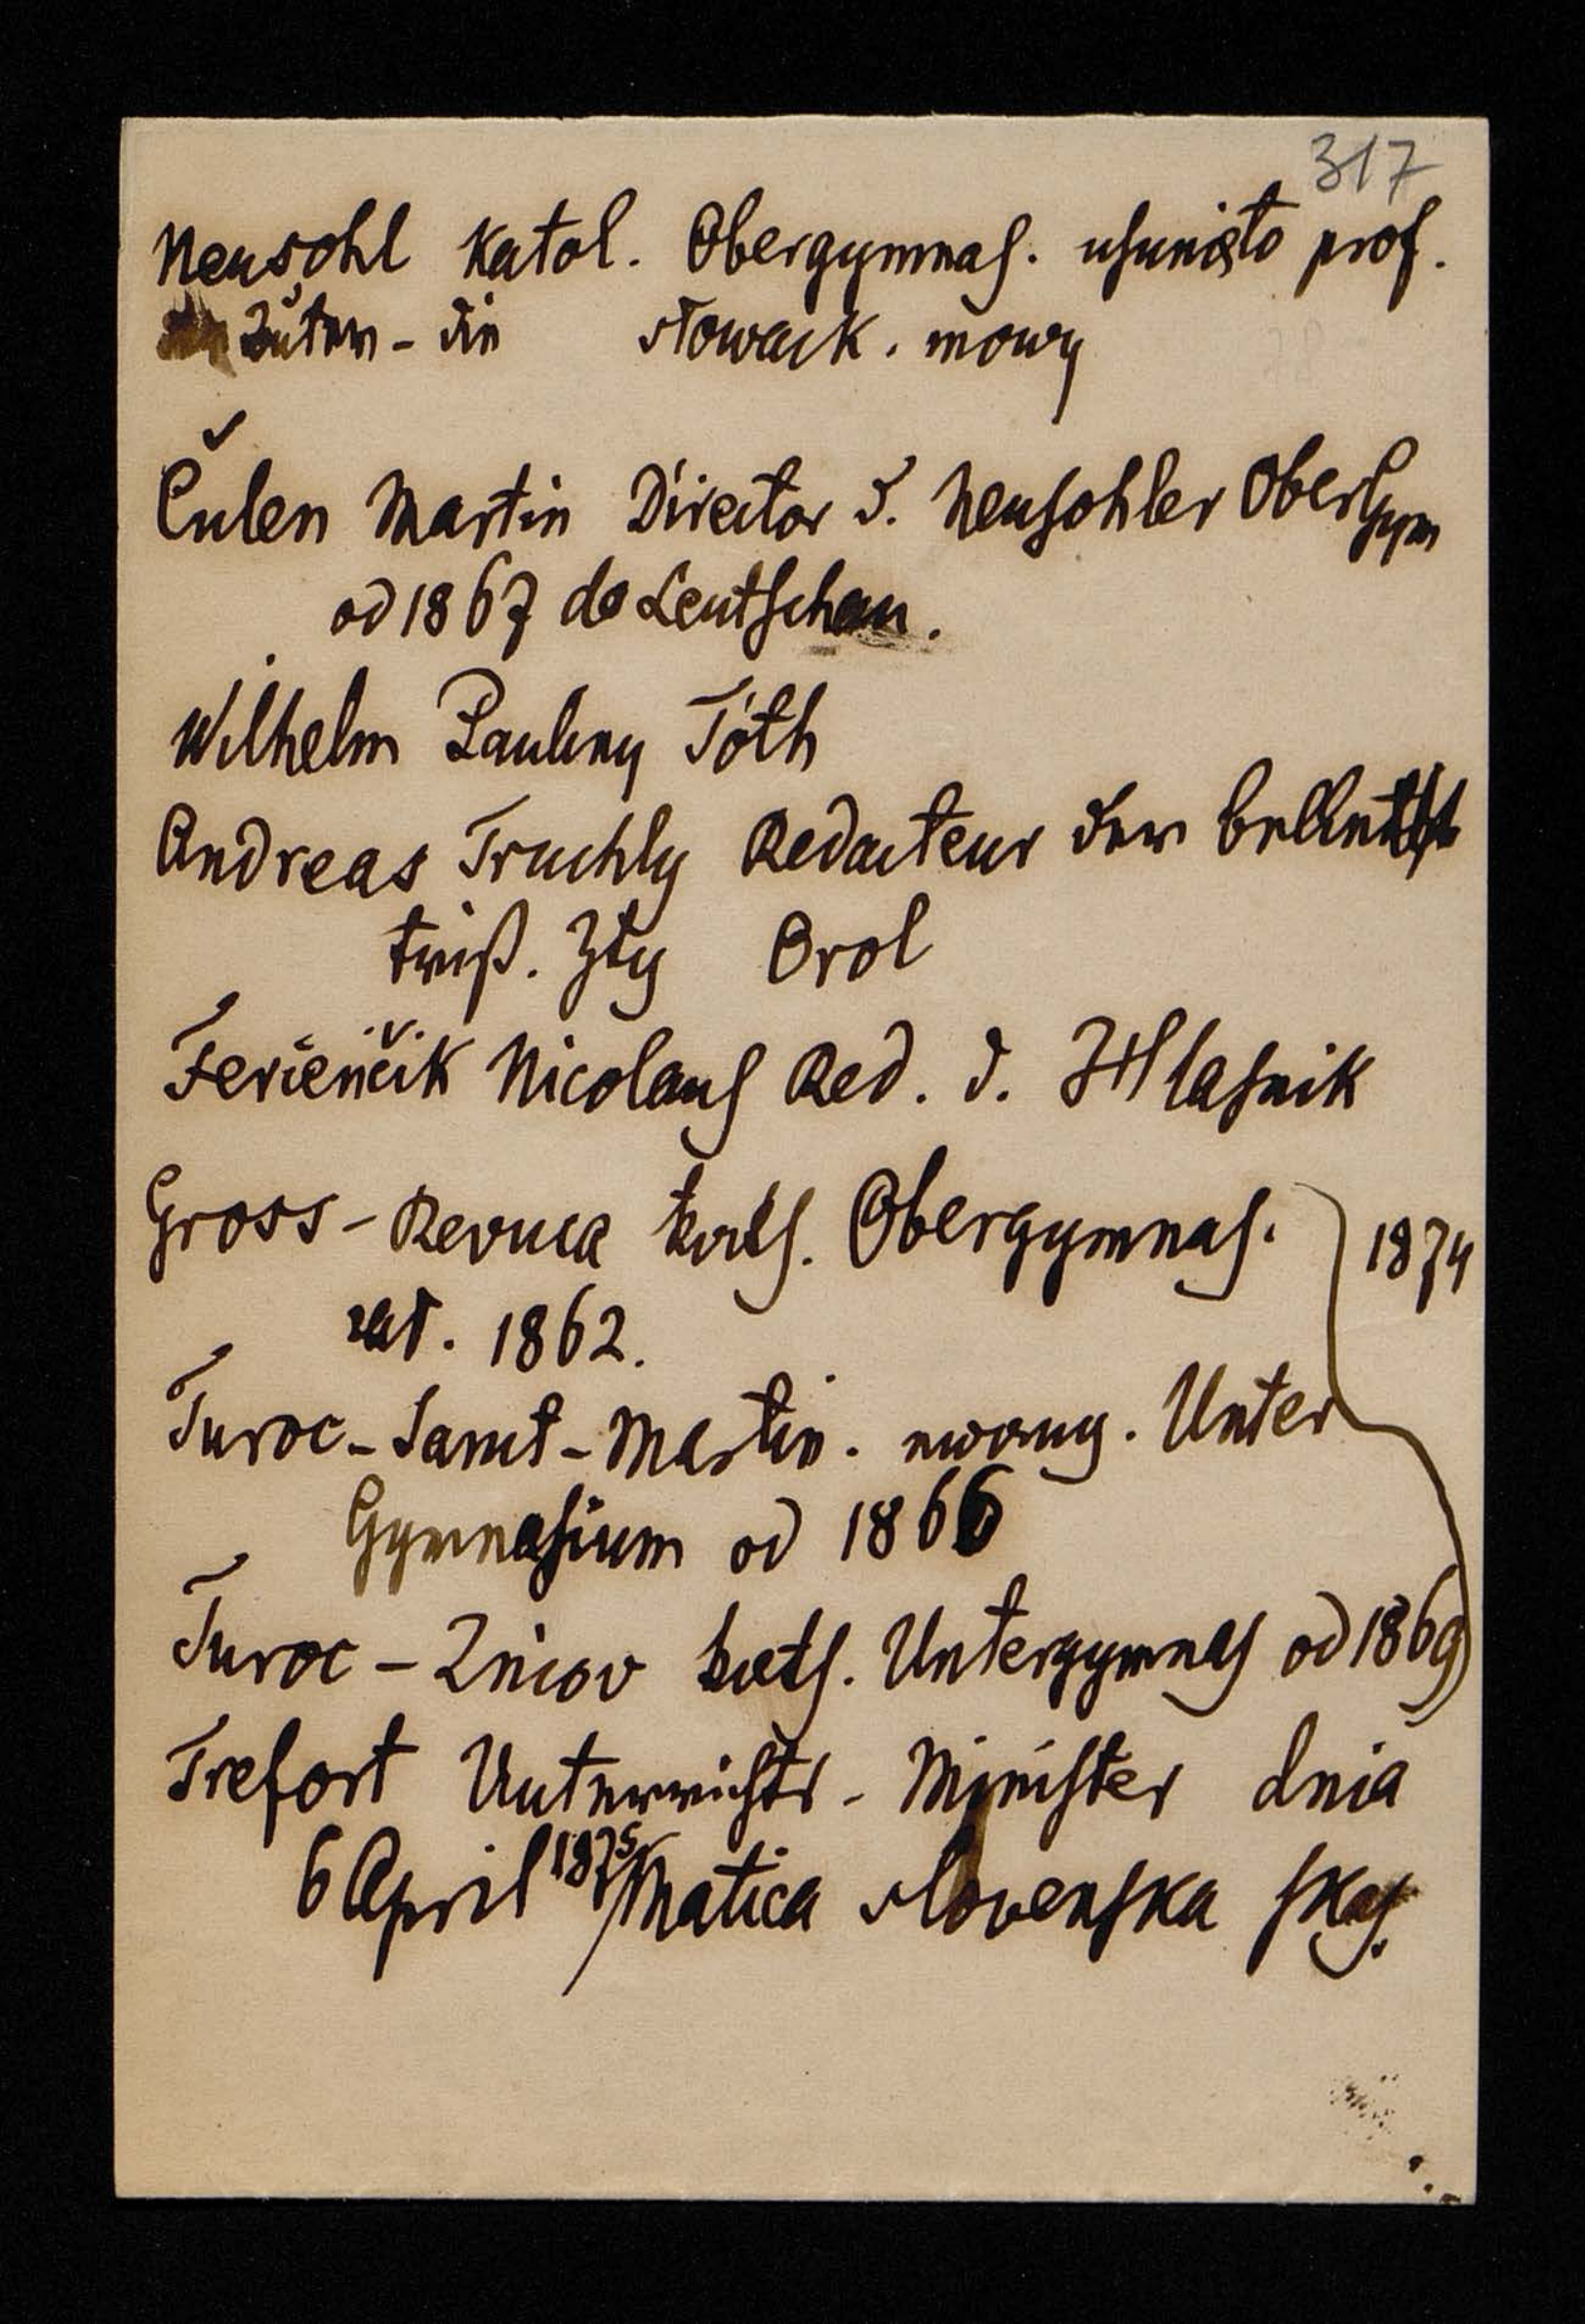 317
Neusohl Katol. Obergymnas. usunięto prof.
słowack. mowy
Čulen Martin Director d. Neusohler OberGym
od 1867 do Leutschau.
Wilhelm Pauliny Tóth
Andreas Truchly Redacteur der belletris
trisch. Ztg Orol
Ferienčik Nicolaus Red. d. Hlasnik
Gross-Revuca kath. Obergymnas. 1874
zał. 1862.
Turoc-Sanct-Martin. ewang. Unter
Gymnasium od 1866
Turoc-Zniov kath. Untergymnas od 1869
Trefort Unterrichts-Minister dnia
6 April 1875 Matica slovenska skas.